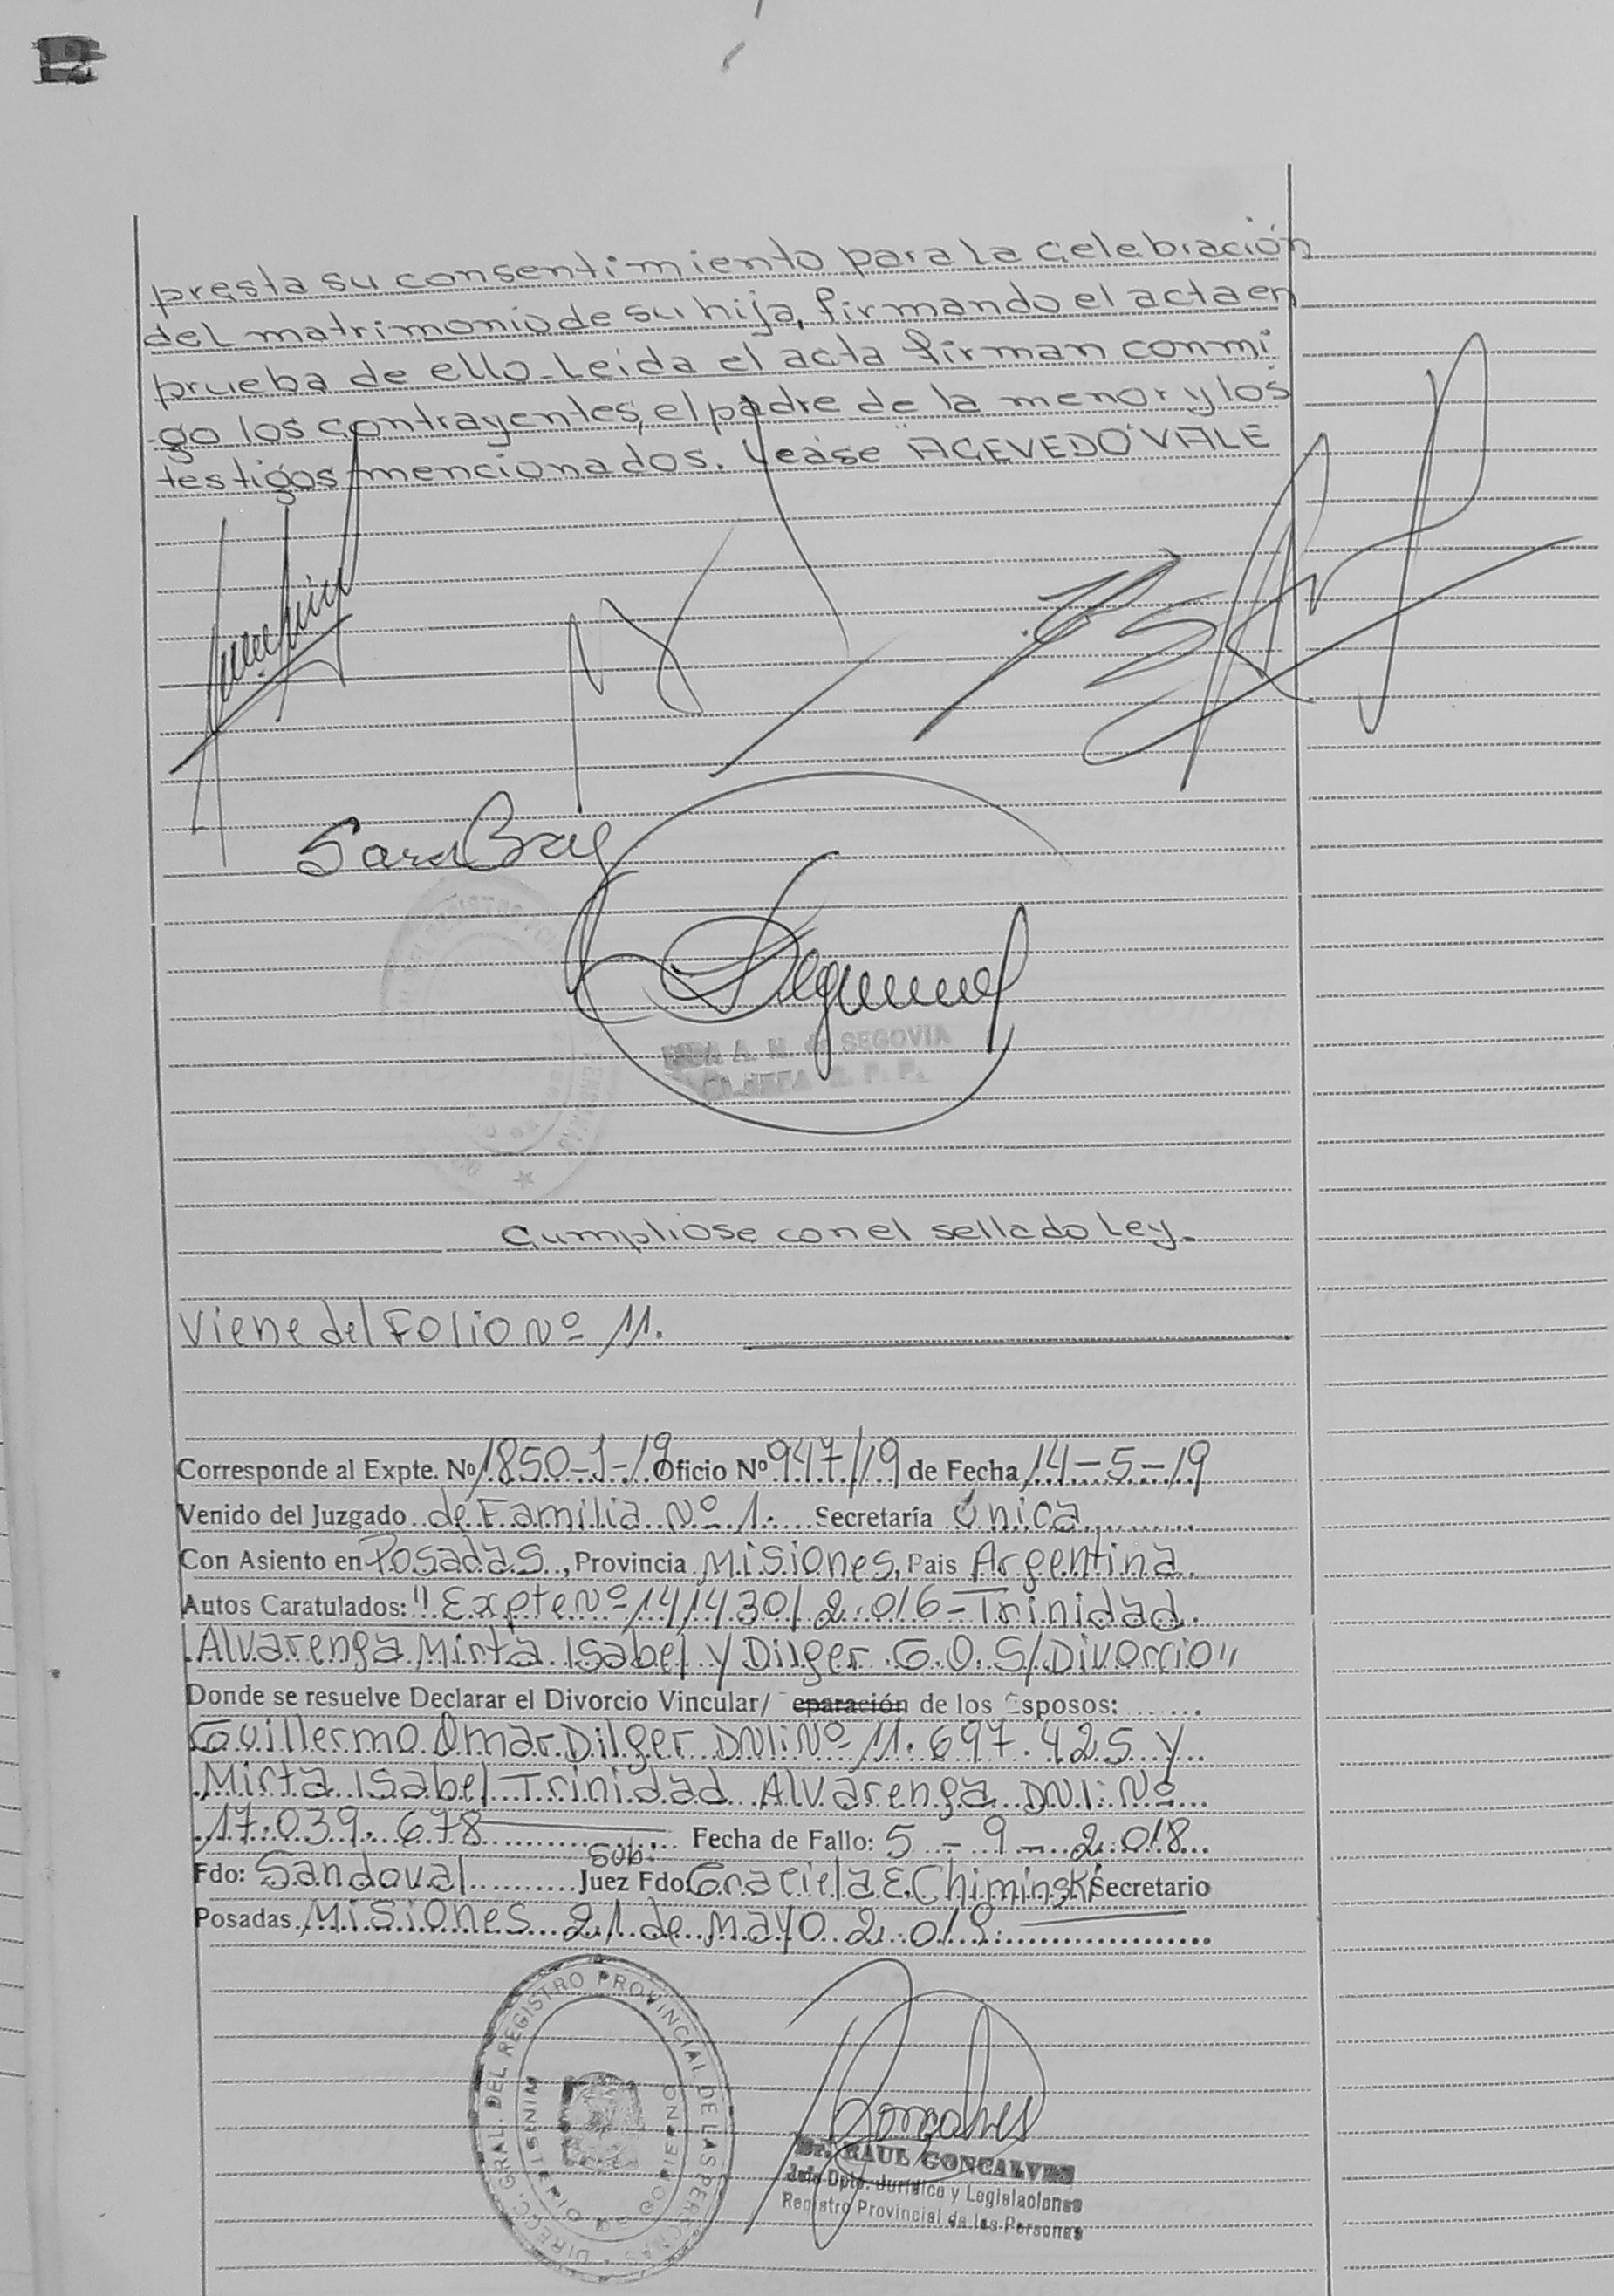 presta su consentimiento para la celebración
del matrimonio de su hija, firmando el acta en
prueba de ello. Leída el acta firman conmi
go los contrayentes, el padre de la menor y los
testigos mencionados. Léase "ACEVEDO" VALE
Sara
A. M. SEGOVIA
Cumplióse con el sellado Ley.
Viene del Folio Nº 11.
Corresponde al Expte. Nº 1850-J-19 Oficio Nº 947/19 de Fecha 14-5-19
Venido del Juzgado de Familia Nº 1. Secretaría Única
Con Asiento en Posadas, Provincia Misiones, Pais Argentina.
Autos Caratulados: "Expte Nº 141430/2.016-Trinidad
Alvarenga Mirta Isabel y Dilger G.O. S/Divorcio"
Donde se resuelve Declarar el Divorcio Vincular/ eparación de los Esposos:
Guillermo Omar Dilger DNI: Nº 11.697.425 y
Mirta Isabel Trinidad Alvarenga DNI: Nº
17.039.678 Fecha de Fallo: 5-9-2.018
Fdo: Sandoval Sub. Juez Fdo: Graciela E. Chiminski Secretario
Posadas Misiones 21 de Mayo 2.019.
DIRECC. GRAL. DEL REGISTRO PROVINCIAL DE LAS PERSONAS
MINISTERIO DE GOBIERNO
Goncalves
Dr. RAUL GONCALVES
Jefe Dpto. Jurídico y Legislaciones
Registro Provincial de las Personas